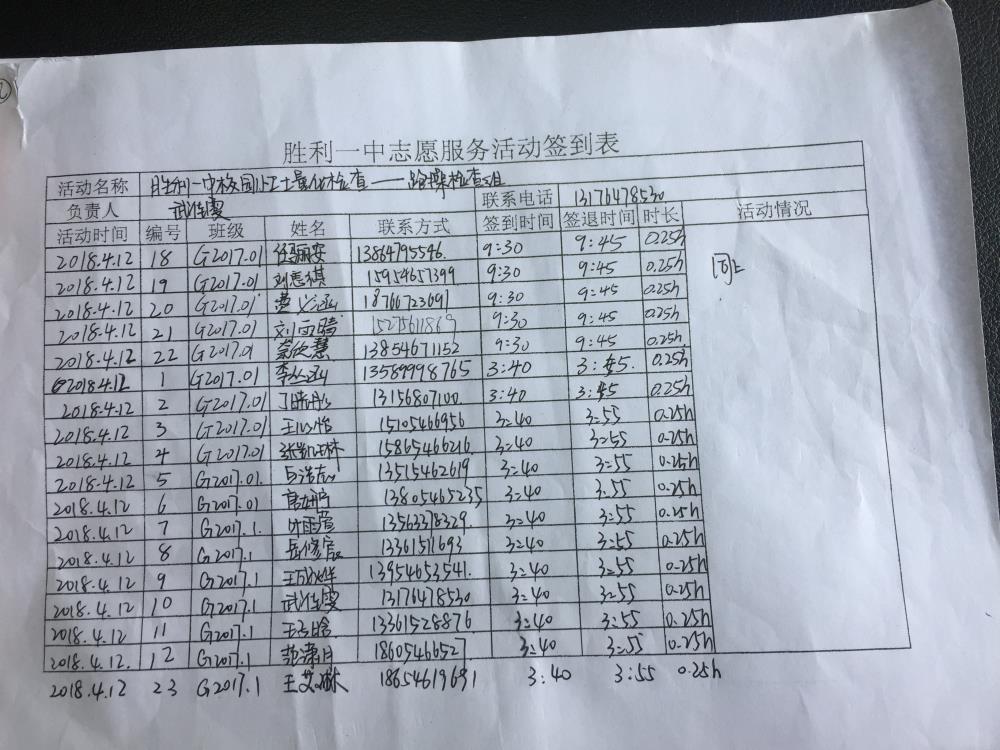 胜利一中志愿服务活动签到表
活动名称 胜利一中校园卫生量化检查——跑操检查组
负责人 武佳雯 联系电话 13176478530
活动时间 编号 班级 姓名 联系方式 签到时间 签退时间 时长 活动情况
2018.4.12 18 G2017.01 13864795546. 9:30 9:45 0.25h 同上
2018.4.12 19 G2017.01 15954657399 9:30 9:45 0.25h
2018.4.12 20 G2017.01 9:30 9:45 0.25h
2018.4.12 21 G2017.01 刘雨晴 9:30 9:45 0.25h
2018.4.12 22 G2017.01 13854671152 9:30 9:45 0.25h
2018.4.12 1 G2017.01 13589998765 3:40 3:55. 0.25h
2018.4.12 2 G2017.01 13156807100. 3:40 3:55 0.25h
2018.4.12 3 G2017.01 王心怡 15105466956 3:40 3:55 0.25h
2018.4.12 4 G2017.01 15865466216 3:40 3:55 0.25h
2018.4.12 5 G2017.01. 13515462619 3:40 3:55 0.25h
2018.4.12 6 G2017.01 13805465235 3:40 3:55 0.25h
2018.4.12 7 G2017.1. 13563378329. 3:40 3:55 0.25h
2018.4.12 8 G2017.1 岳修宸 13361511693 3:40 3:55 0.25h
2018.4.12 9 G2017.1 13954653541. 3:40 3:55 0.25h
2018.4.12 10 G2017.1 武佳雯 13176478530 3:40 3:55 0.25h
2018.4.12 11 G2017.1 13361528876 3:40 3:55 0.25h
2018.4.12. 12 G2017.1 范潇月 18605466527 3:40 3:55 0.25h
2018.4.12 23 G2017.1 王艾琳 18654619691 3:40 3:55 0.25h